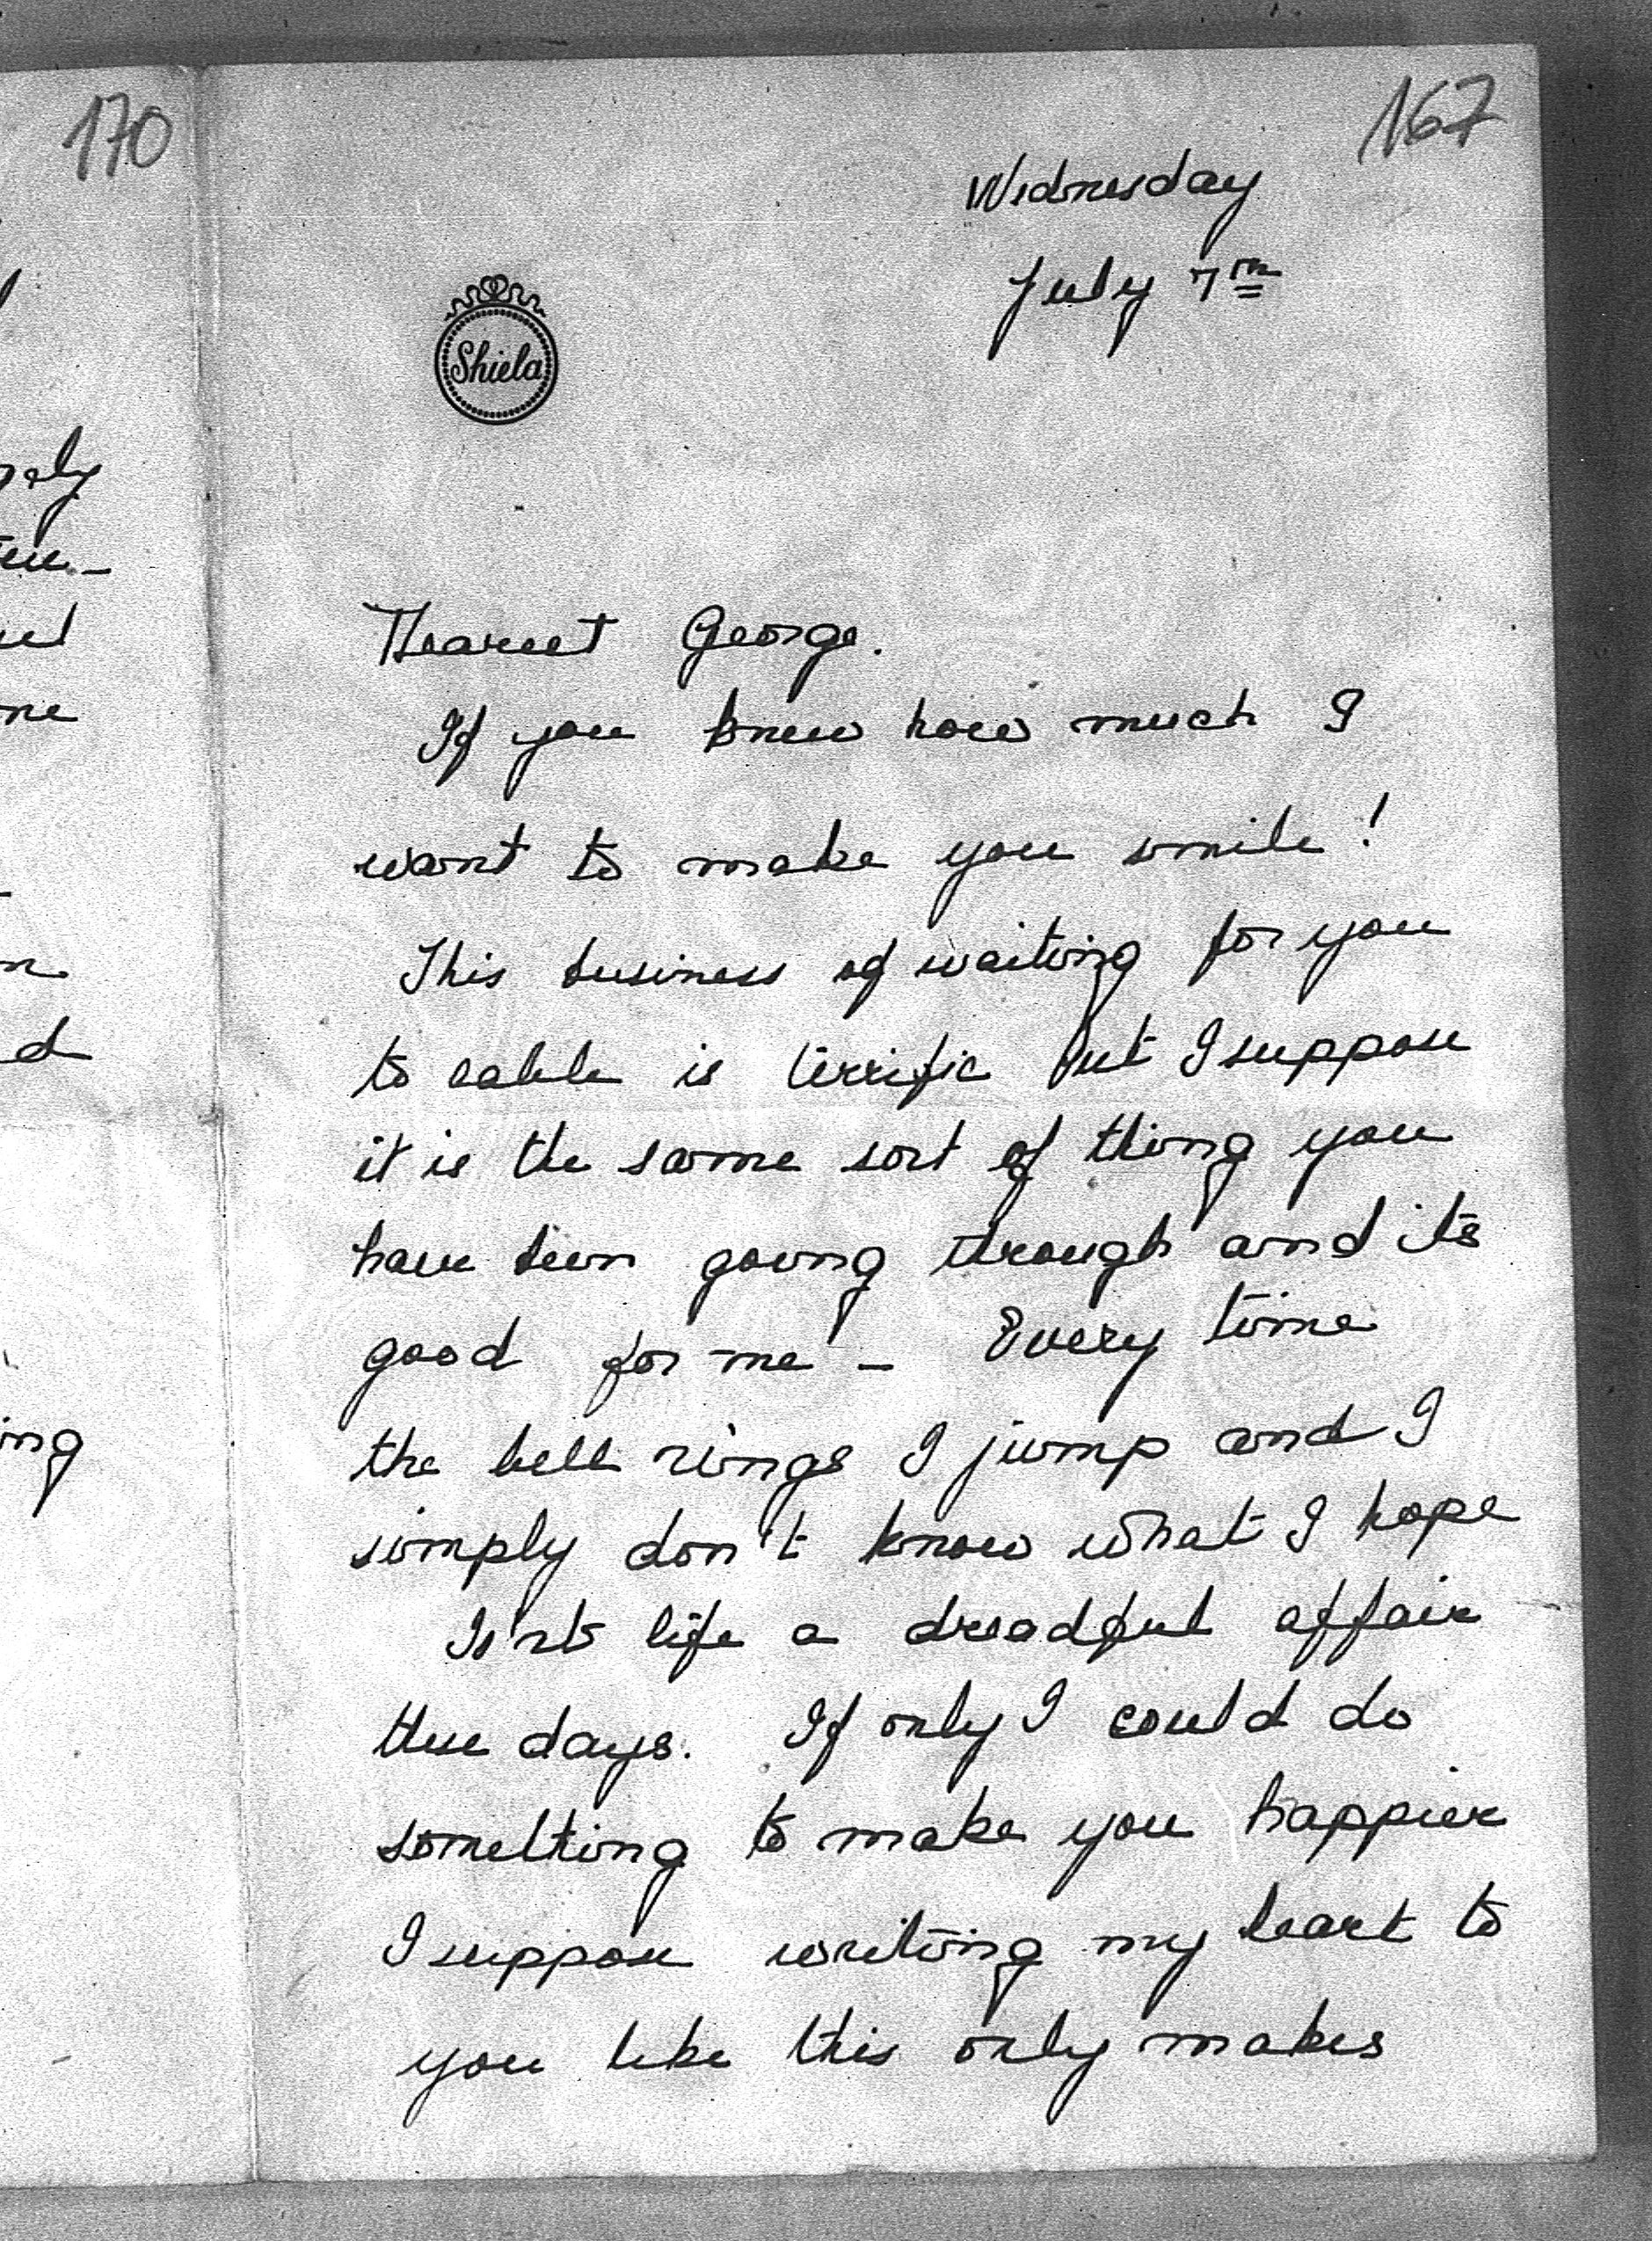 170
167
Wednesday
July 7th
Shiela
Dearest George.
If you knew how much I
want to make you smile!
This business of waiting for you
to cable is terrific but I suppose
it is the same sort of thing you
have been going through and its
good for me – Every time
the bell rings I jump and I
simply don't know what I hope
Isn't life a dreadful affair
these days. If only I could do
something to make you happier
I suppose writing my heart to
you like this only makes
ing